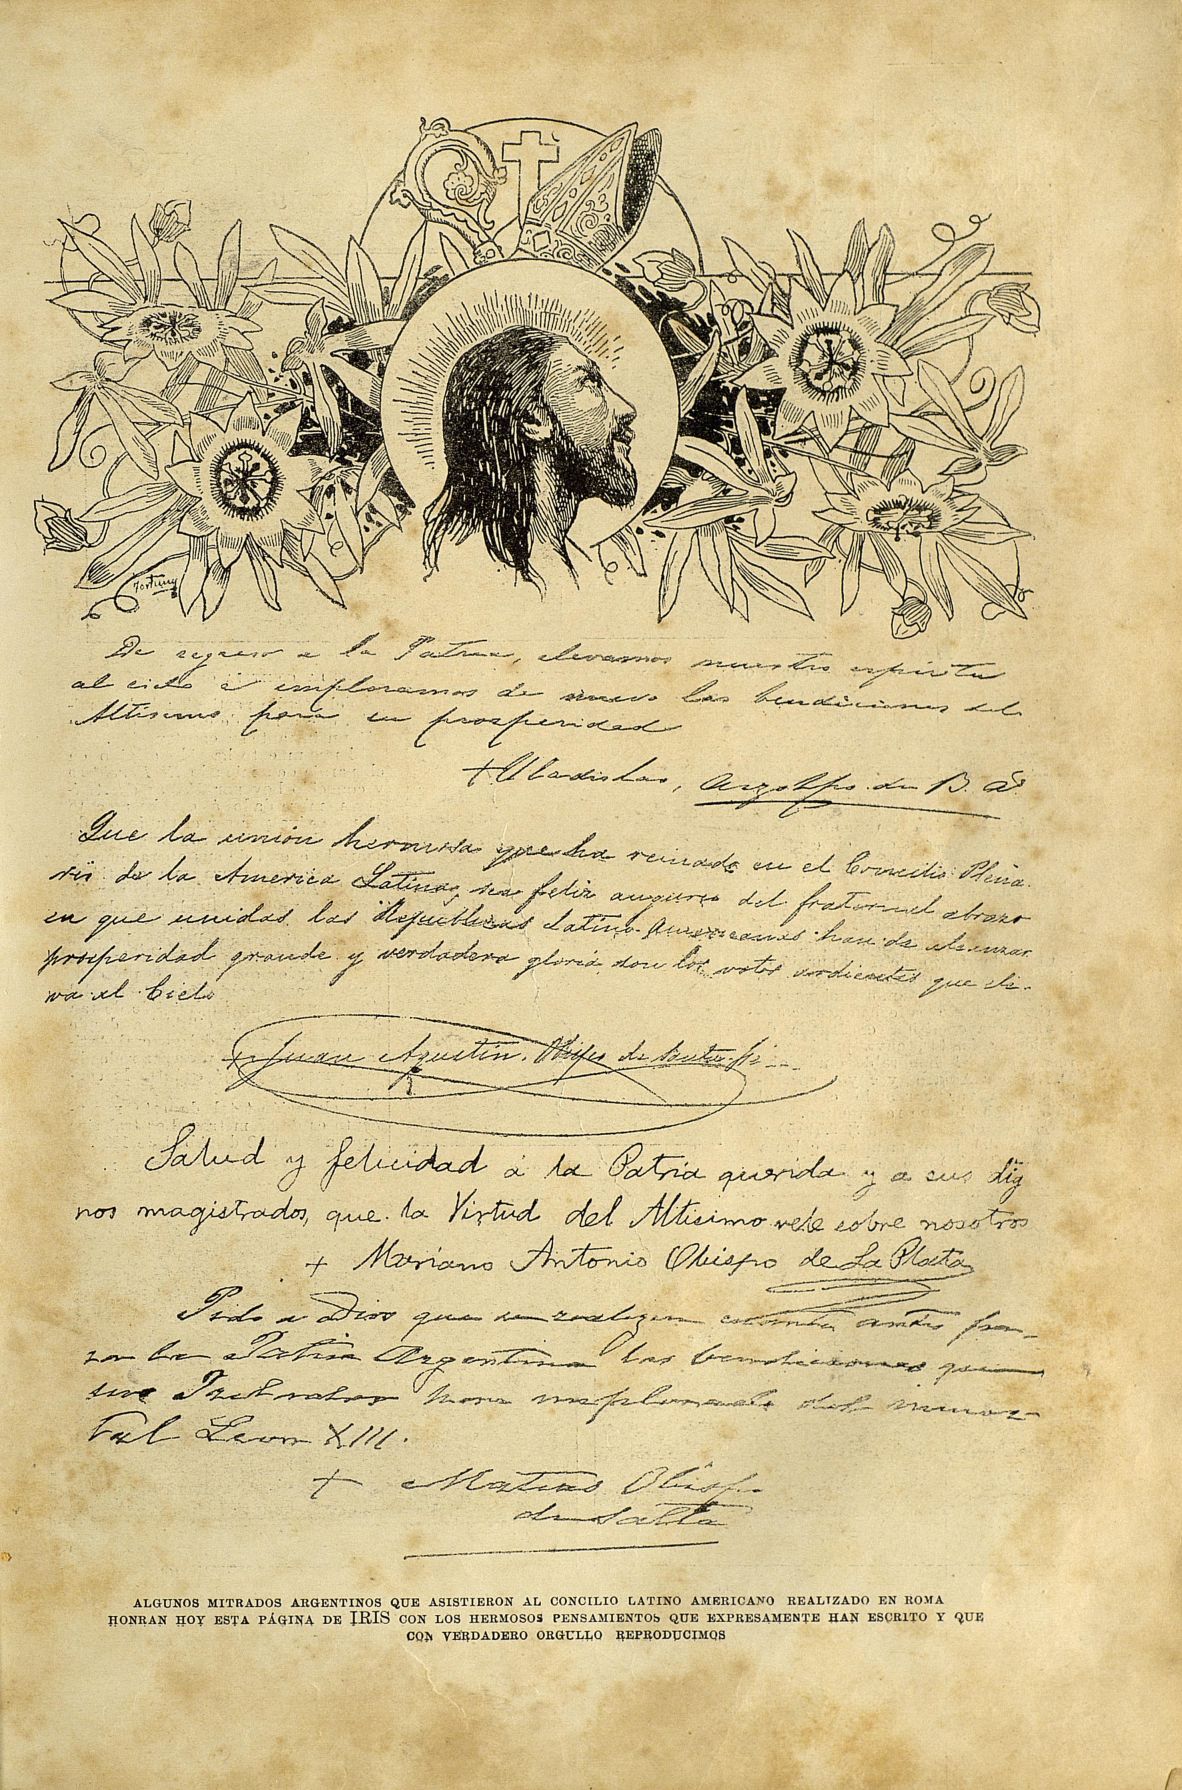 Fortuny
De regreso a la Patria, elevamos nuestro espiritu
al cielo é imploramos de nuevo las bendiciones del
Altisimo para su prosperidad
+ Uladislao, Arzobpo de B. As
Que la unión hermosa que ha reinado en el Concilio Plena-
rio de la America Latina, sea feliz augurio del fraternal abrazo
en que unidas las Republicas Latino-Americanas han de alcanzar
prosperidad grande y verdadera gloria, son los votos ardientes que ele-
va al Cielo
+ Juan Agustin. Obispo de Santa Fé
Salud y felicidad á la Patria querida y a sus dig
nos magistrados, que la Virtud del Altisimo vele sobre nosotros
+ Mariano Antonio Obispo de La Plata
Pido a Dios que se realizen cuanto antes pa-
ra la Patria Argentina las bendiciones que
sus Prelados han implorado del inmor-
tal Leon XIII.
+ Matias Obispo
de Salta
ALGUNOS MITRADOS ARGENTINOS QUE ASISTIERON AL CONCILIO LATINO AMERICANO REALIZADO EN ROMA
HONRAN HOY ESTA PÁGINA DE IRIS CON LOS HERMOSOS PENSAMIENTOS QUE EXPRESAMENTE HAN ESCRITO Y QUE
CON VERDADERO ORGULLO REPRODUCIMOS